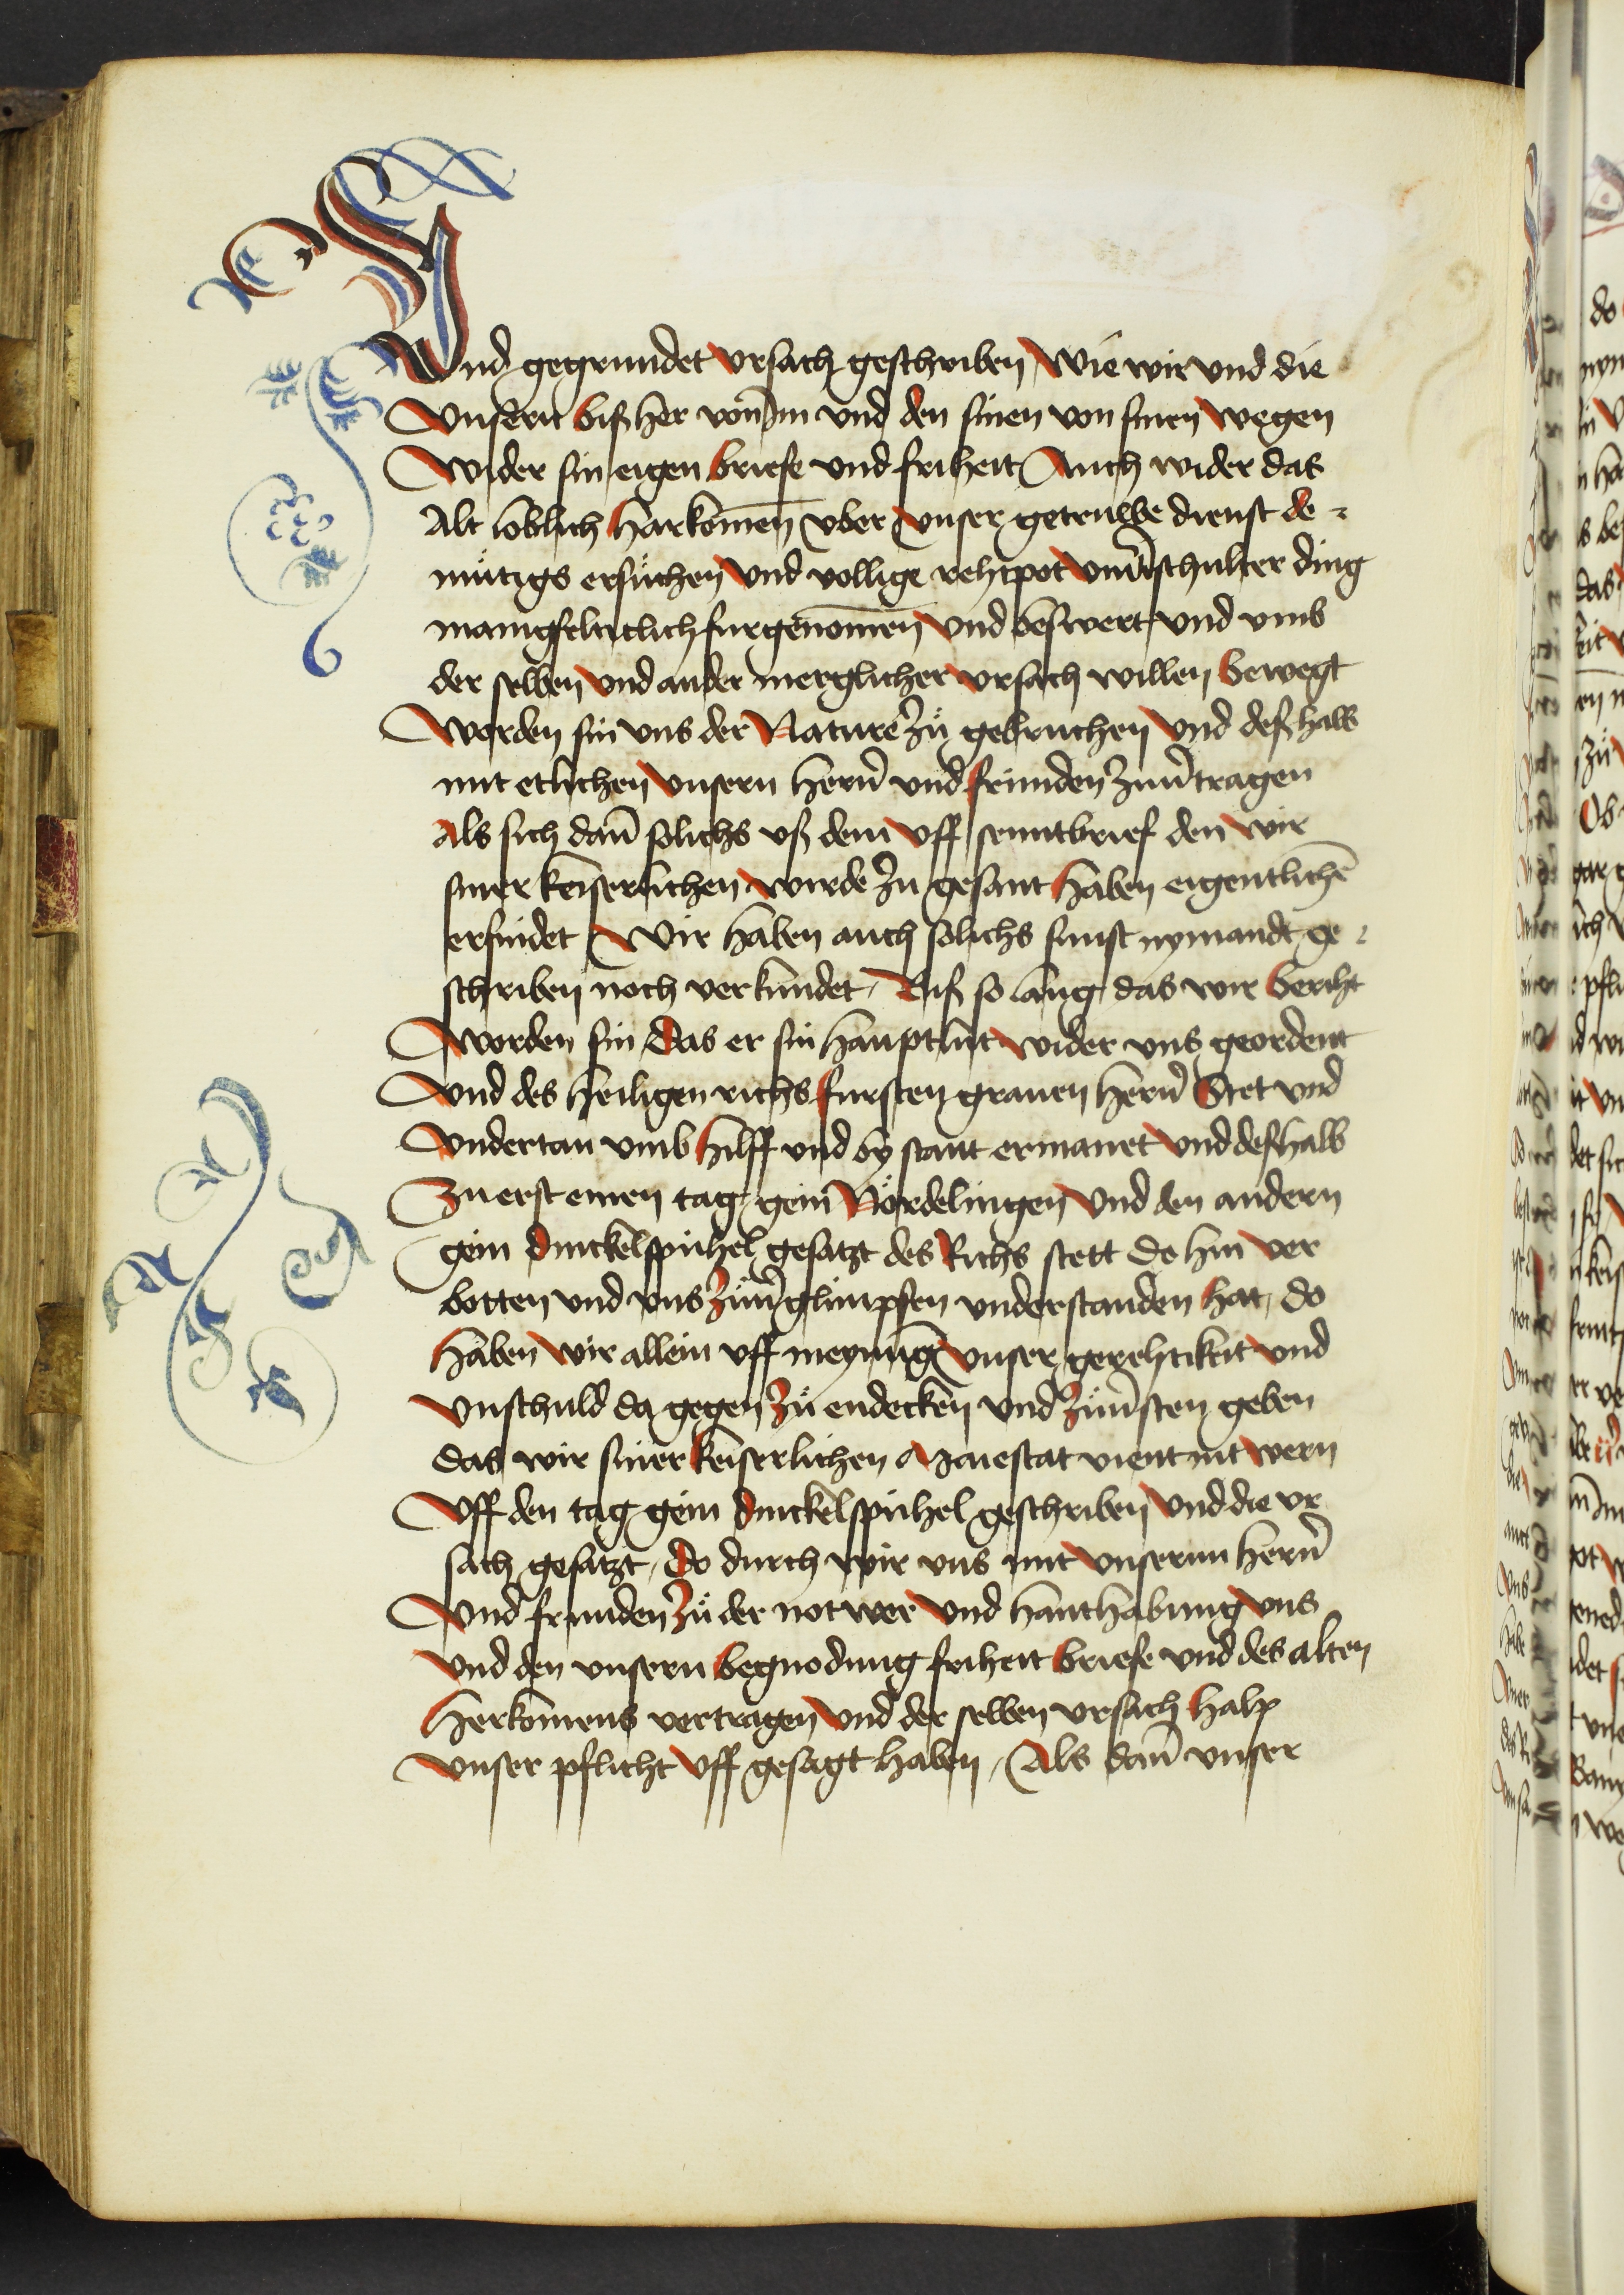 Und gegrundet vrsach geschriben Wie wir vnd die
Vnsern biß her von im vnd den sinen von sinen wegen
Wider sin eigen briefe vnd friheit Auch wider das
Alt loblich harkomen vber vnser getruwe dienst de-
mütigs ersuchen vnd vollige rehtpot vnuerschulter ding
manigfelticlich furgenomen vnd beswert vnd vmb
der selben vnd ander merglicher vrsach willen bewegt
Worden sin vns der Nature zü gebruchen vnd deßhalb
mit etlichen vnsern hern vnd frunden zuuertragen
Als sich dan solichs vß dem vff senntbrief den wir
siner keiserlichen wirde zu gesant haben eigentlichen
erfindet Wir haben auch solichs sunst nymandt ge-
schriben noch verkundet, Biß so lang das wir beriht
Worden sin, Das er sin hauptlut wider vns geordent
Vnd des heiligen richs fursten grauen hern Stet vnd
Vndertan vmb hilff vnd by stant ermanet vnd deßhalb
Zu erst einen tag gein Nördelingen vnd den andern
gein dinckelspuhel gesatzt des Richs stett do hin ver
botten vnd vns züuerglimpfen vnderstanden hat, do
haben wir allein vff meynung vnser gerehtikeit vnd
Vnschuld da gegen zü endecken vnd züuersten geben
das wir siner keiserlichen Maiestat vient nit wern
Vff den tag gein dinckelspuhel geschriben vnd die vr
sach gesatzt, Do durch wir vns mit vnsernn hern
Vnd frunden zü der notwer vnd hanthabung vns
Vnd den vnsern begnodung friheit briefe vnd des alten
herkomens vertragen vnd der selben vrsach halp
Vnser pflicht vff gesagt haben, Als dan vnser